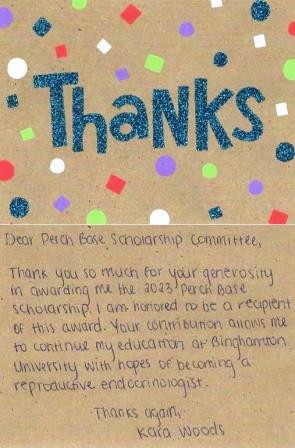 Thanks
Dear Perch Base Scholarship Committee,
Thank you so much for your generosity
in awarding me the 2023 Perch Base
scholarship. I am honored to be a recipient
of this award. Your contribution allows me
to continue my education at Binghamton
University with hopes of becoming a
reproductive endocrinologist.
Thanks again,
Kara Woods